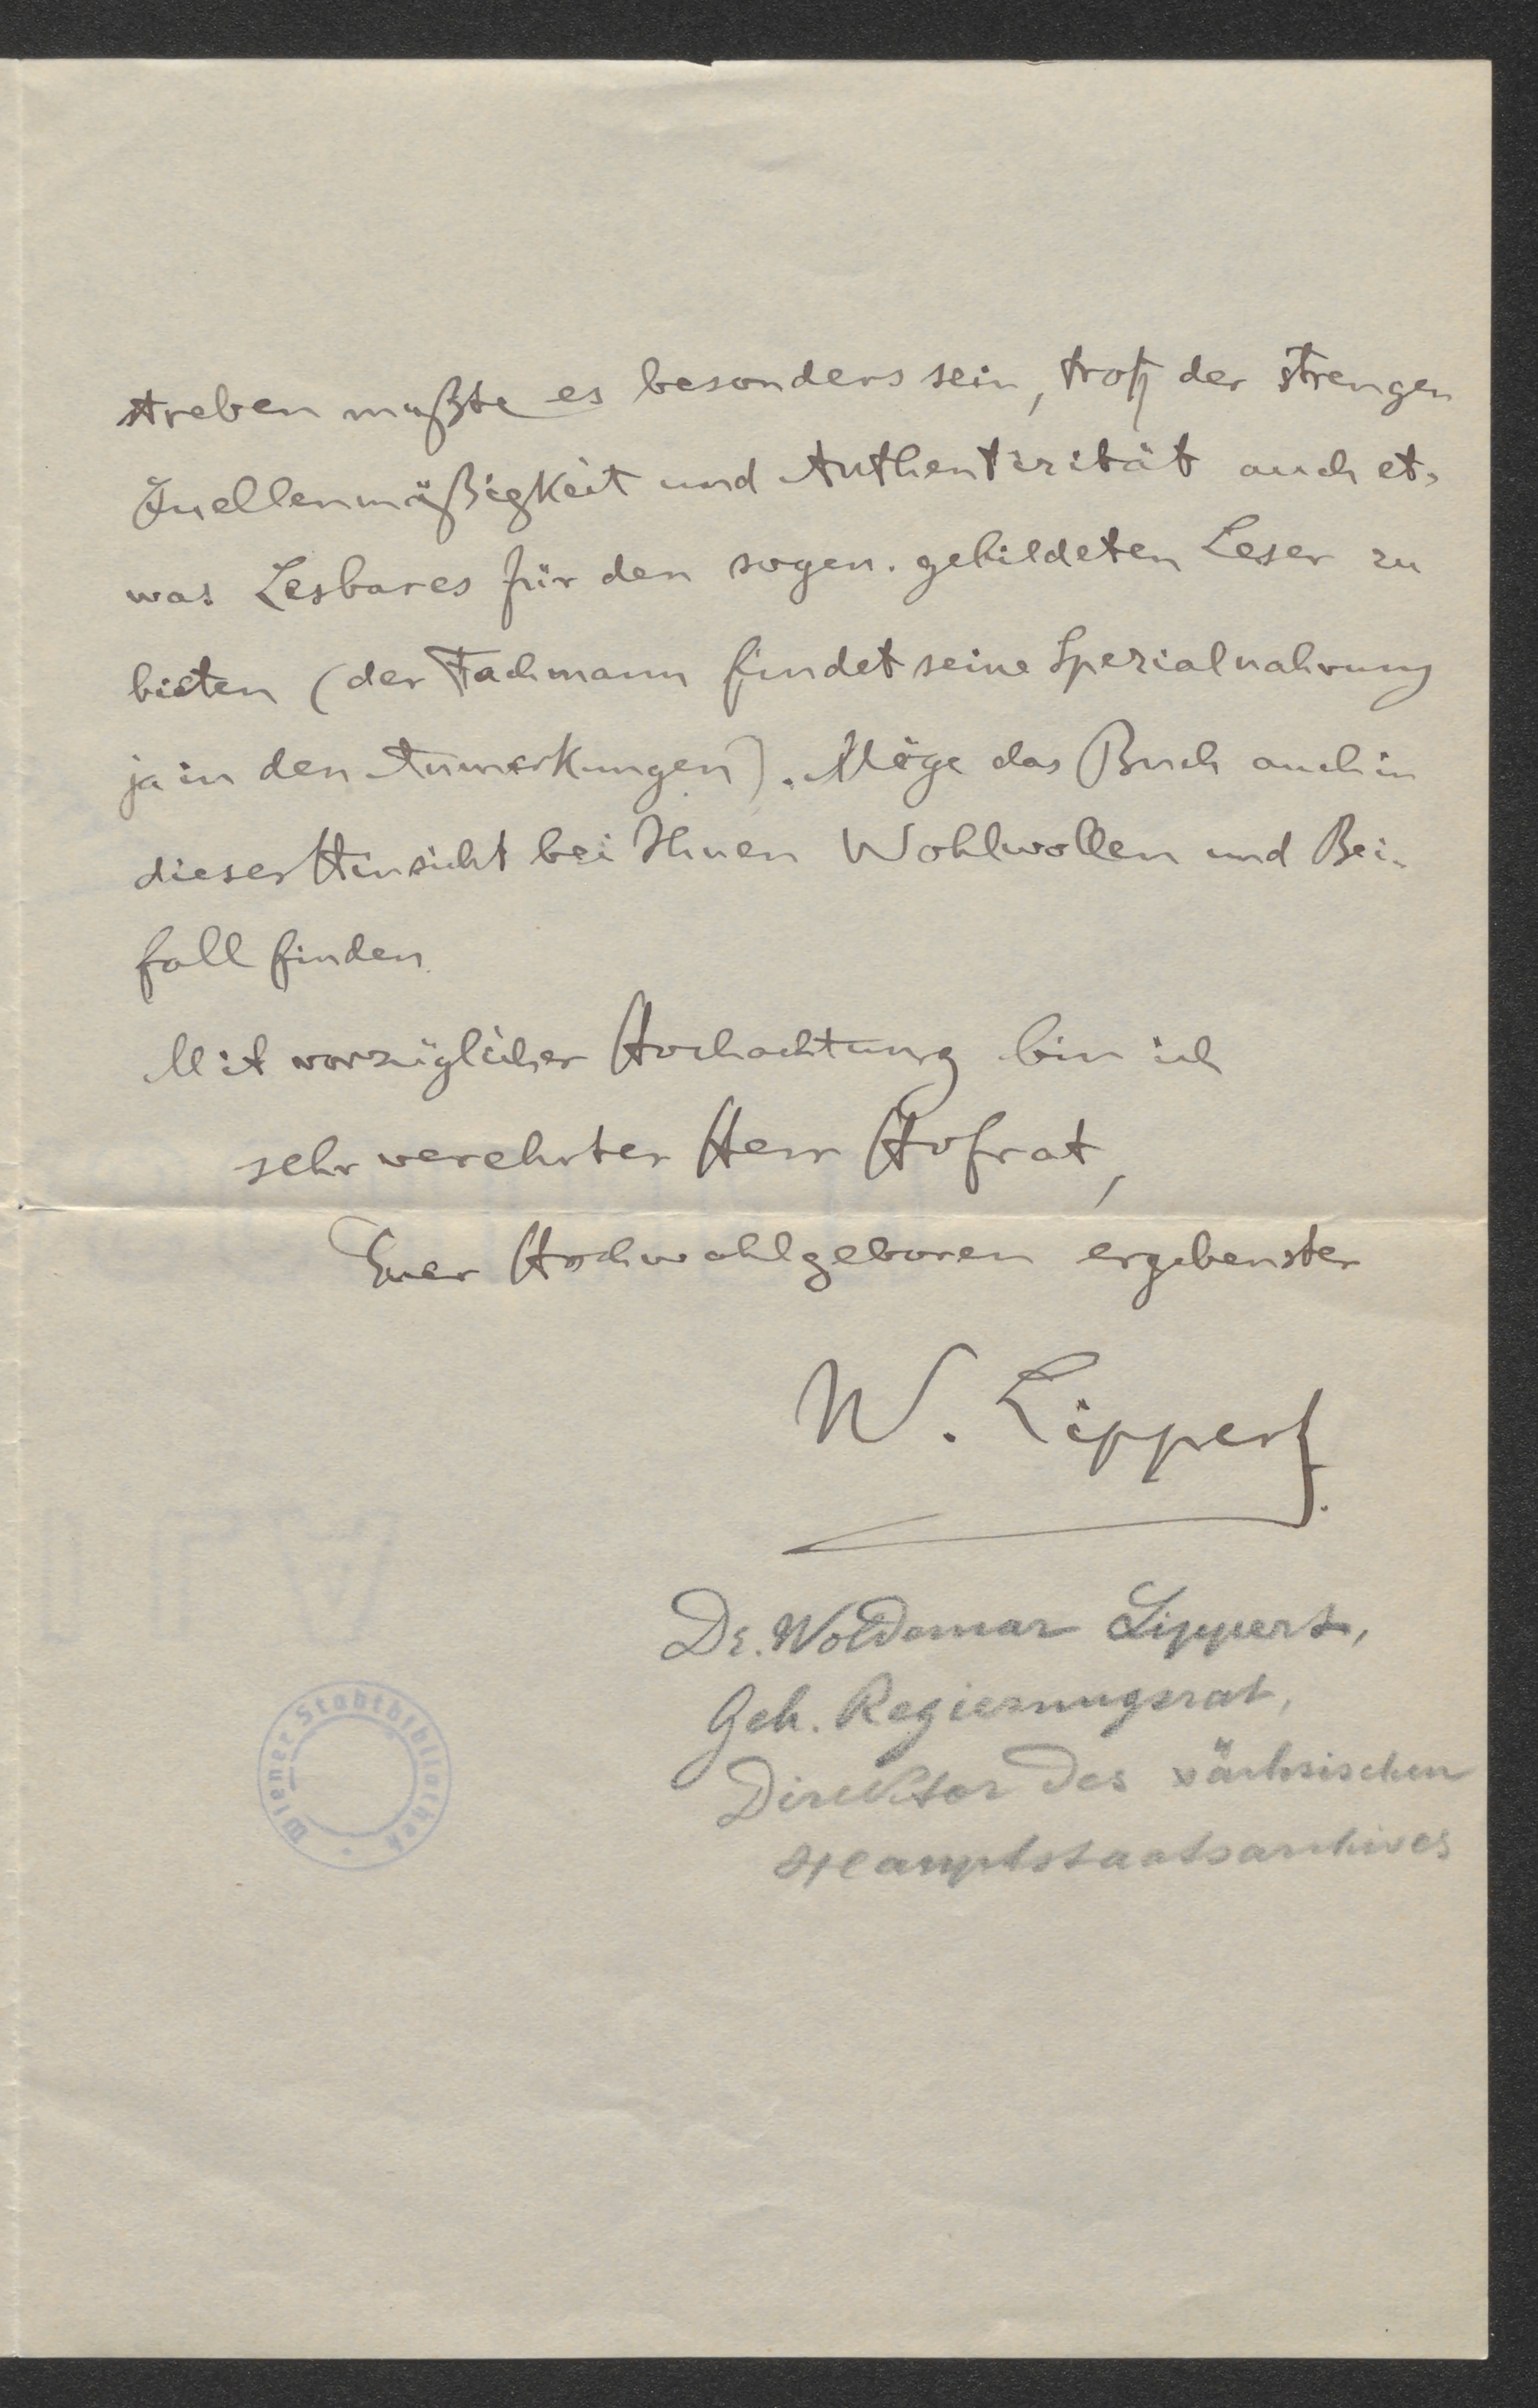 streben mußte es besonders sein, trotz der strengen
Quellenmäßigkeit und Authentizität auch et-
was Lesbares für den sogen. gebildeten Leser zu
bieten (der Fachmann findet seine Spezialnahrung
ja in den Anmerkungen). Möge das Buch auch in
dieser Hinsicht bei Ihnen Wohlwollen und Bei-
fall finden.
Mit vorzüglicher Hochachtung bin ich
sehr verehrter Herr Hofrat,
Euer Hochwohlgeboren ergebenster
W. Lippert.
Dr. Woldemar Lippert,
Geh. Regierungsrat,
Direktor des sächsischen
Hauptstaatsarchives
Wiener Stadtbibliothek